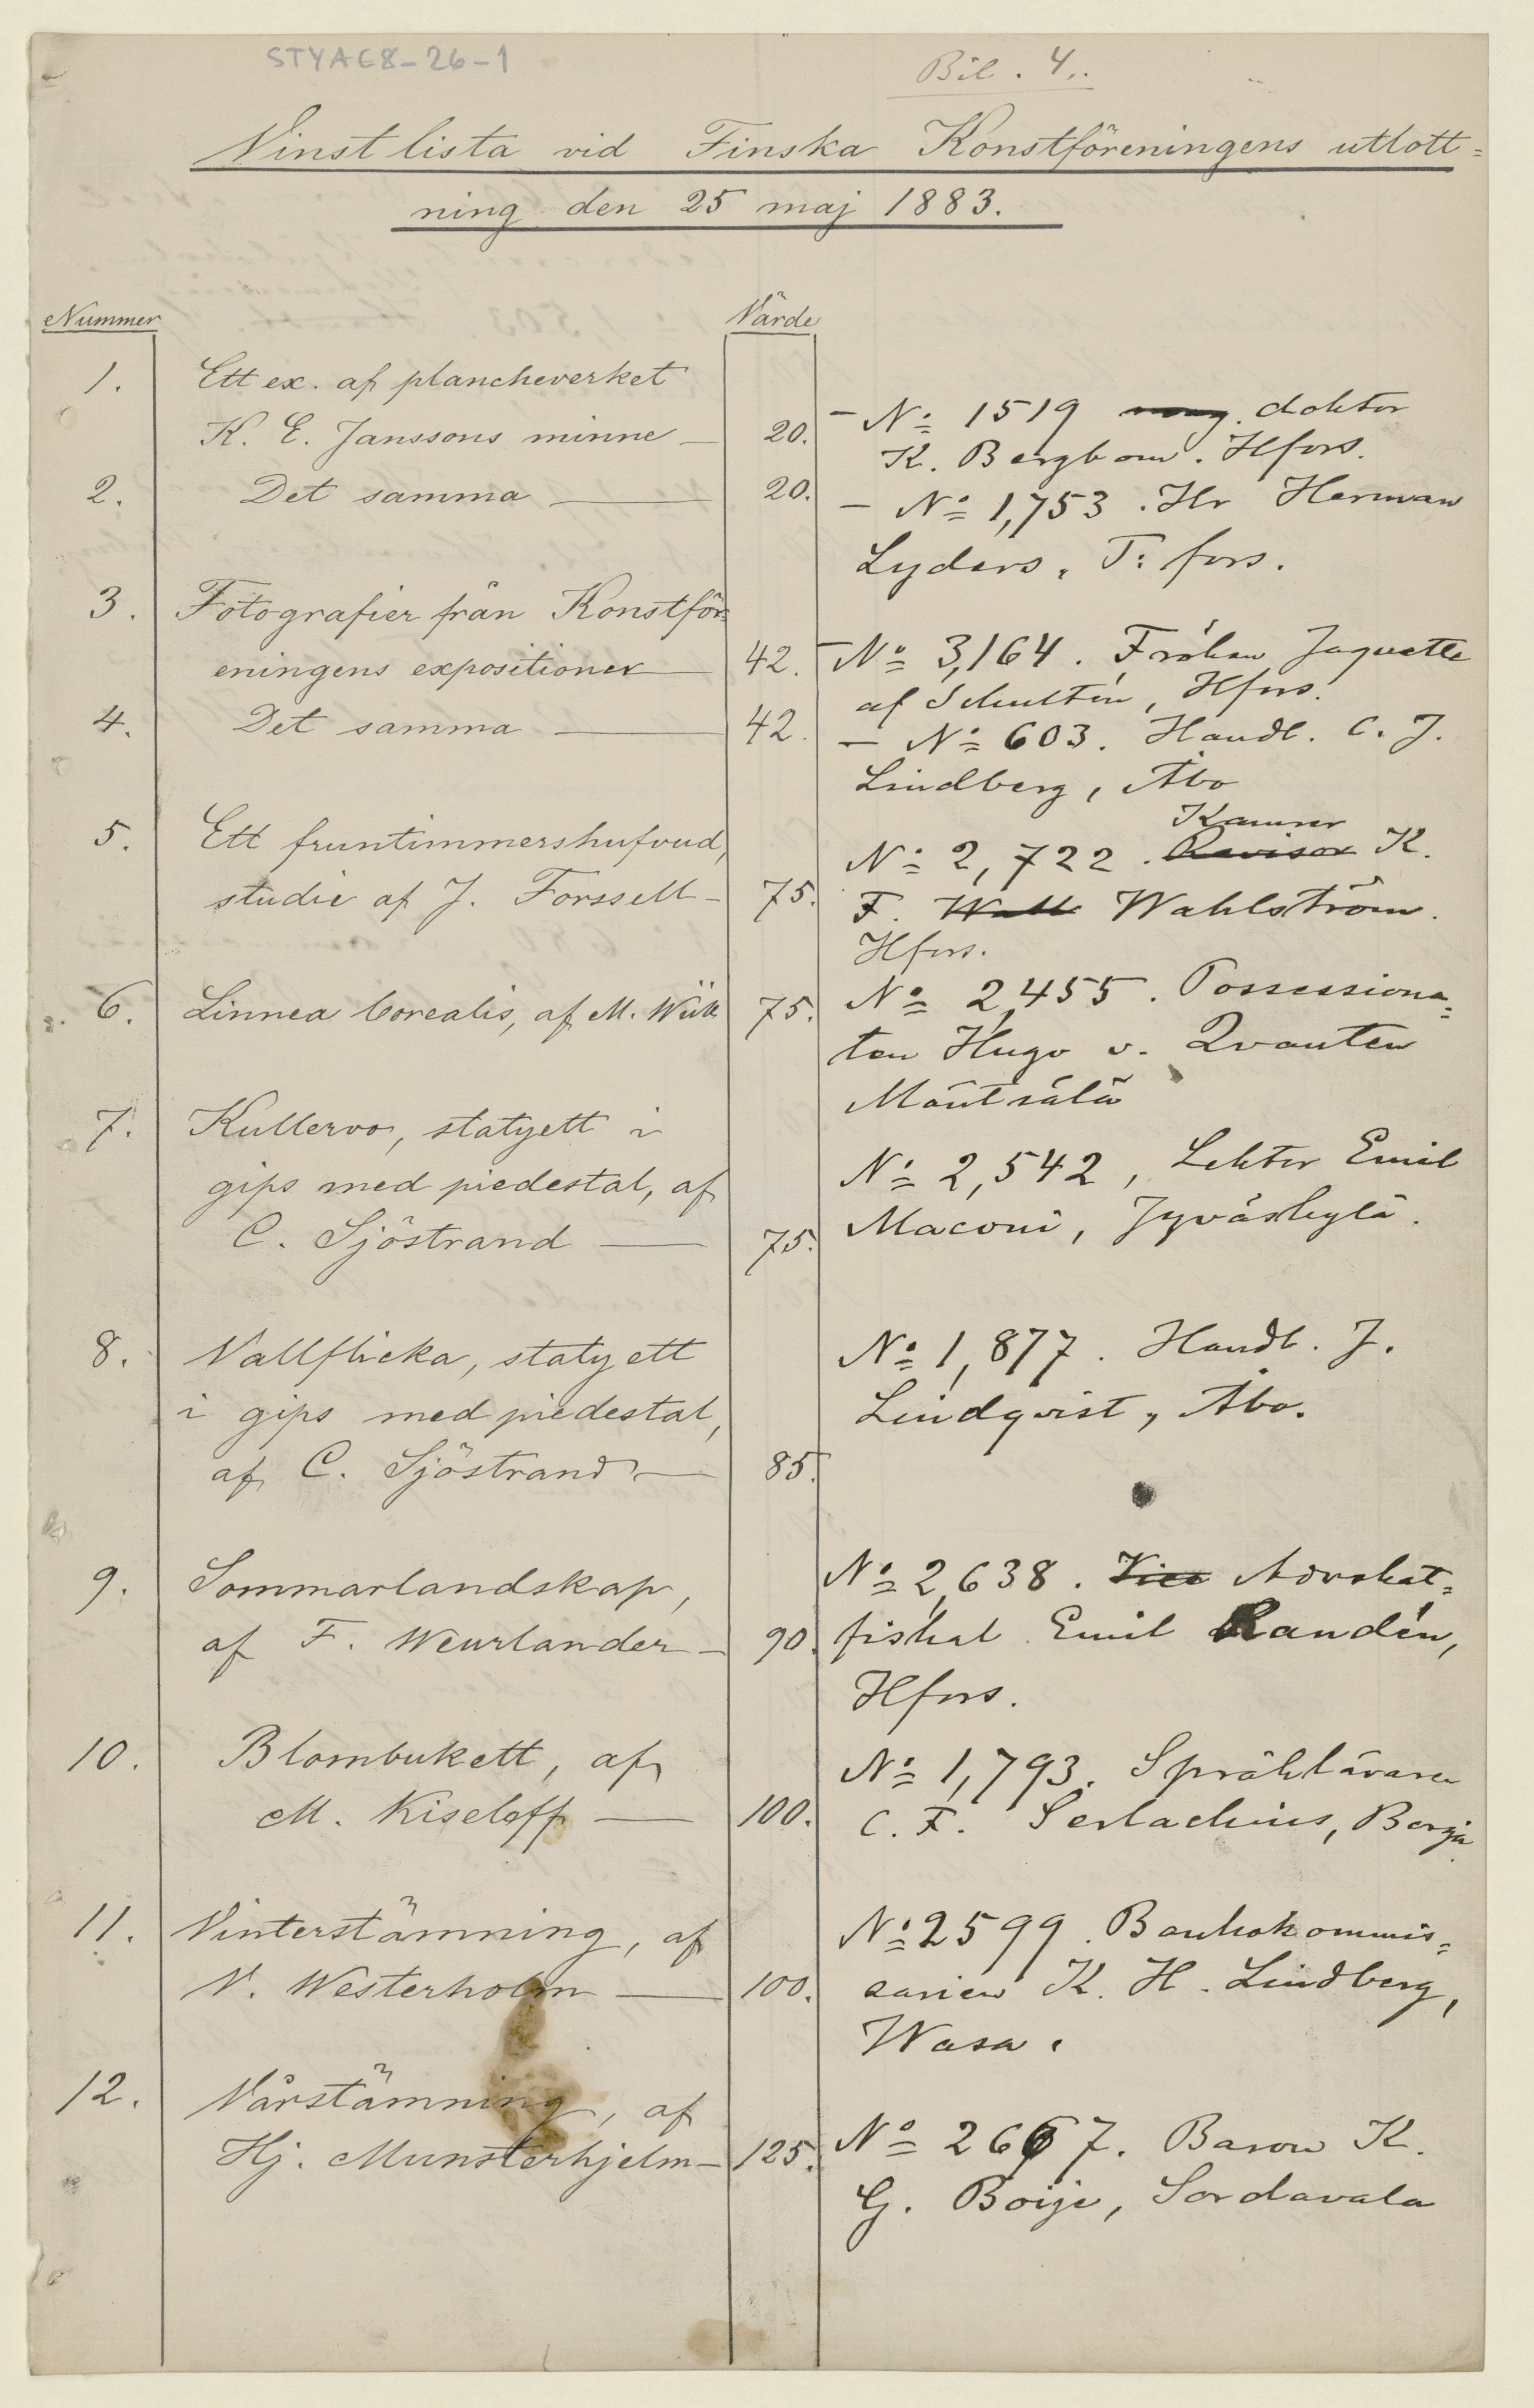 STYAE8-26-1
Bil. 4.
Vinstlista vid Finska Konstföreningens utlott=
ning den 25 maj 1883.
Nummer
Värde
1. Ett ex. af plancheverket
K. E. Janssons minne — 20.
— No 1519 mag. doktor
K. Bergbom. Hfors.
2. Det samma — 20.
— No 1,753. Hr Herman
Lyders, T:fors.
3. Fotografier från Konstför=
eningens expositioner — 42.
— No 3,164. Fröken Jaquette
af Schultén, Hfors.
4. Det samma — 42.
— No 603. Handl. C. J.
Lindberg, Åbo
5. Ett fruntimmershufvud,
studie af J. Forssell — 75.
Kamrer
No 2,722. Revisor K.
F. Wall Wahlström.
Hfors.
6. Linnea borealis, af M. Wiik 75.
No 2,455. Possessiona=
ten Hugo v. Qvanten
Mäntsälä
7. Kullervo, statyett i
gips med piedestal, af
C. Sjöstrand — 75.
No 2,542, Lektor Emil
Maconi, Jyväskylä.
8. Vallflicka, statyett
i gips med piedestal,
af C. Sjöstrand — 85.
No 1,877. Handl. J.
Lindqvist, Åbo.
9. Sommarlandskap,
af F. Weurlander — 90.
No 2,638. Vice Advokat=
fiskal Emil Randén,
Hfors.
10. Blombukett, af
M. Kiseleff — 100.
No 1,793. Språkläraren
C. F. Serlachius, Borgå.
11. Vinterstämning, af
V. Westerholm — 100.
No 2599. Bankokommis=
sarien K. H. Lindberg,
Wasa.
12. Vårstämning, af
Hj. Munsterhjelm — 125.
No 2667. Baron K.
G. Boije, Sordavala